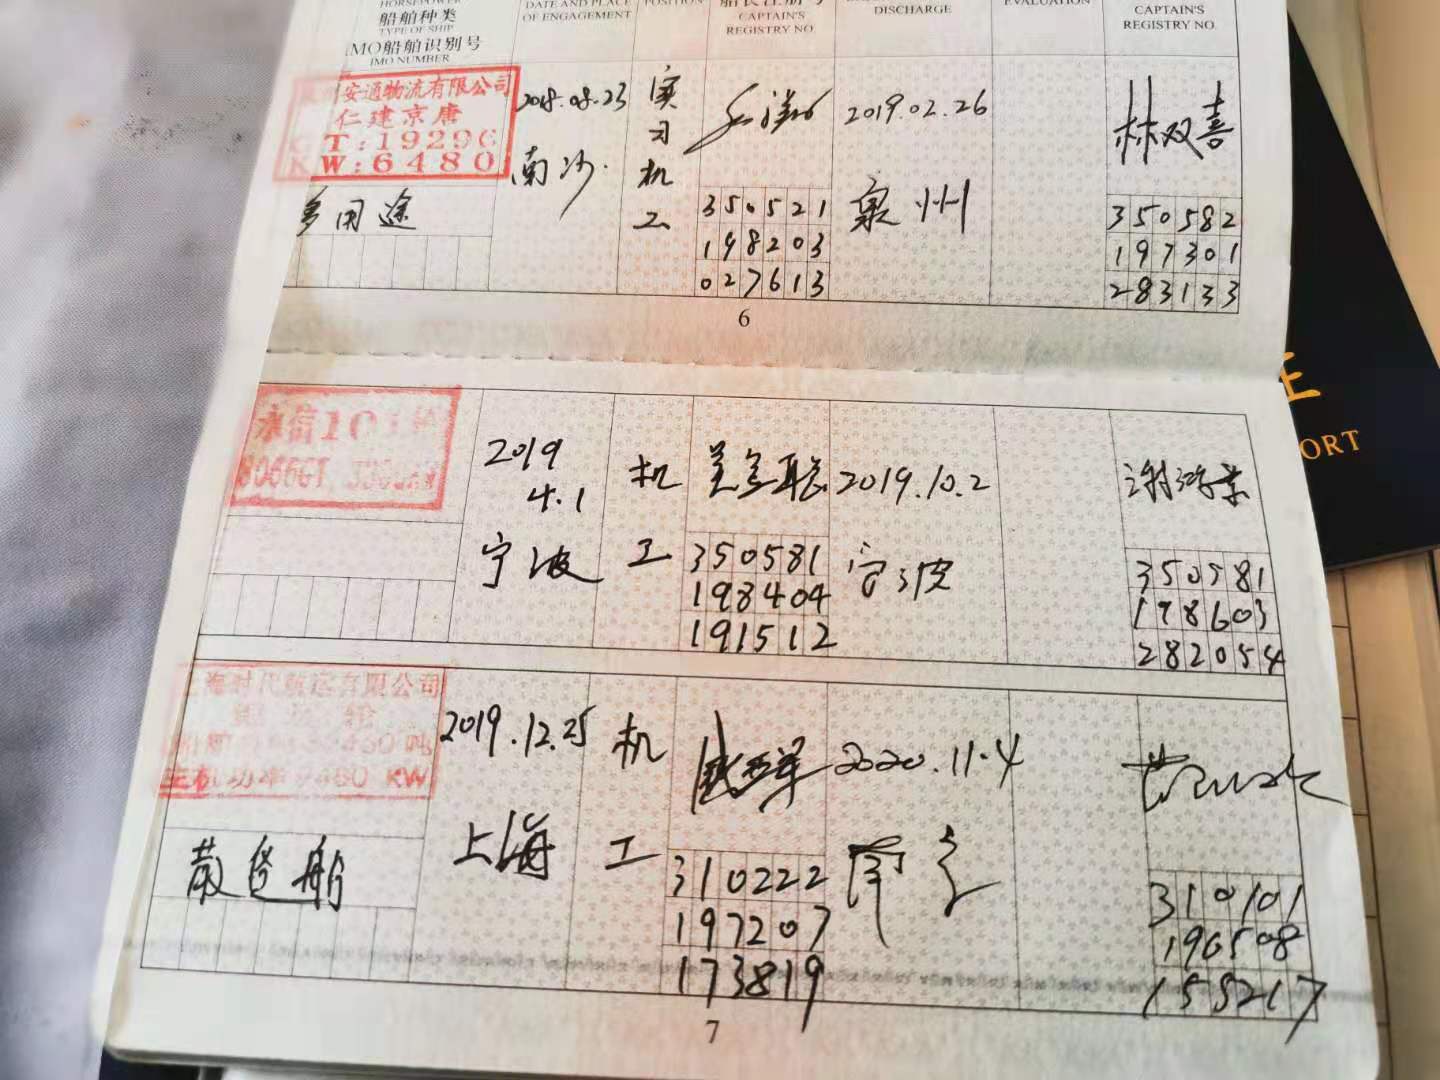 HORSEPOWER
船舶种类
TYPE OF SHIP
IMO船舶识别号
IMO NUMBER
DATE AND PLACE
OF ENGAGEMENT
POSITION
CAPTAIN'S
REGISTRY NO.
DISCHARGE
EVALUATION
CAPTAIN'S
REGISTRY NO.
安通物流有限公司
仁建京唐
GT:19296
KW:6480
多用途
2018.08.23
南沙.
实习机工
350521
198203
027613
2019.02.26
泉州
林双喜
350582
197301
283133
6
永信10
8066GT
2019
4.1
宁波
机工
350581
198404
191512
2019.10.2
宁波
350581
198603
282054
上海时代航运有限公司
主机功率9480 KW
散货船
2019.12.25
上海
机工
310222
197207
173819
2020.11.4
310101
196508
155217
7
ORT